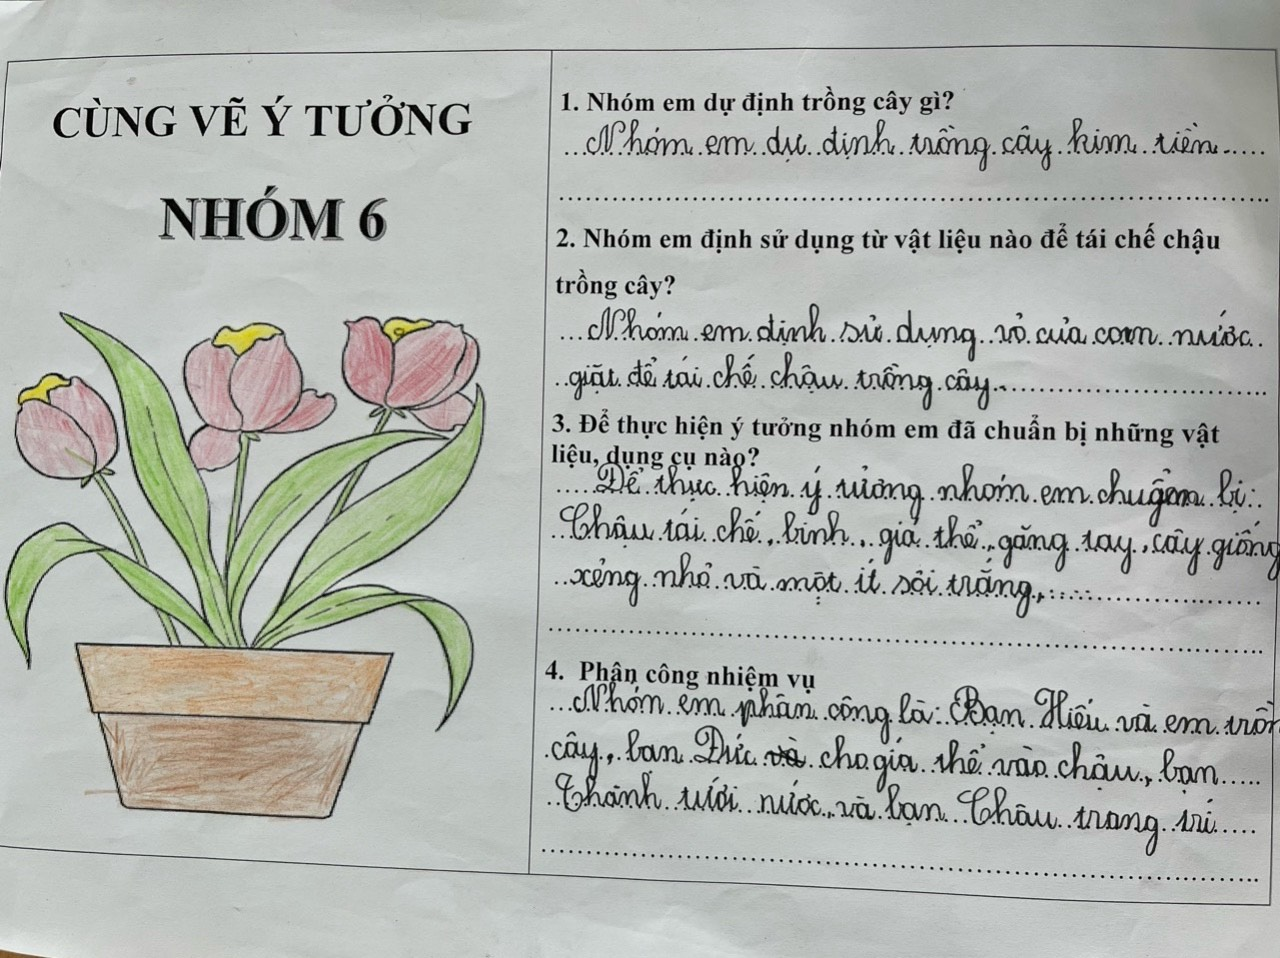 CÙNG VẼ Ý TƯỞNG
NHÓM 6
1. Nhóm em dự định trồng cây gì?
Nhóm em dự định trồng cây kim tiền
2. Nhóm em định sử dụng từ vật liệu nào để tái chế chậu
trồng cây?
Nhóm em định sử dụng vỏ của con nước
giặt để tái chế chậu trồng cây.
3. Để thực hiện ý tưởng nhóm em đã chuẩn bị những vật
liệu, dụng cụ nào?
Để thực hiện ý tưởng nhóm em chuẩn bị:
Chậu tái chế, bình, giá thể, găng tay, cây giống
xẻng nhỏ và một ít sỏi trắng,
4. Phận công nhiệm vụ
Nhóm em phân công là: Bạn Hiếu và em trồn
cây, ban Đức cho giá thể vào chậu, bạn
Thành tưới nước, và bạn Châu trang trí